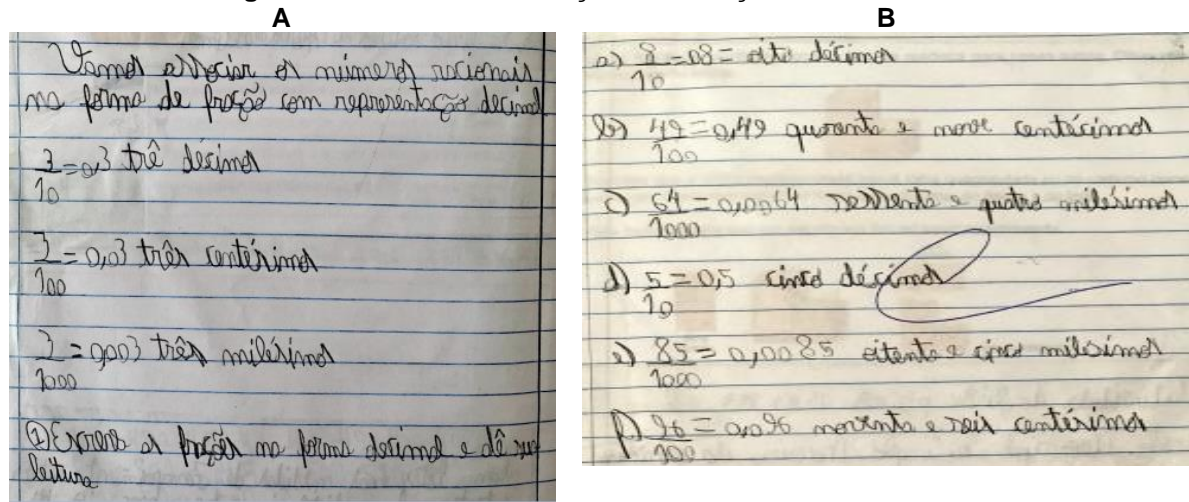 A
Vamos associar os números racionais
na forma de fração com representação decimal
3/10 = 0,3 trê décimos
3/100 = 0,03 três centésimos
3/1000 = 0,003 três milésimos
① Escreva as frações na forma decimal e dê sua
leitura
B
a) 8/10 = 08 = oito décimos
b) 49/100 = 0,49 quarenta e nove centésimos
c) 64/1000 = 0,0064 sessenta e quatro milésimos
d) 5/10 = 0,5 cinco décimos
e) 85/1000 = 0,0085 oitenta e cinco milésimos
f) 96/100 = 0,096 noventa e seis centésimos